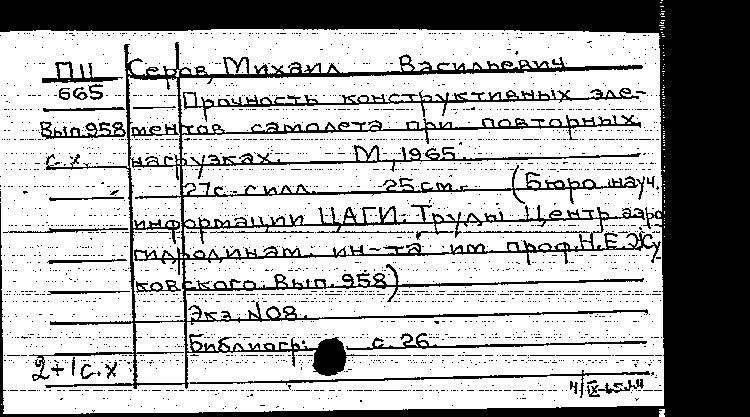 П11 Серов, Михаил Васильевич
665 Прочность конструктивных эле-
Вып.958 ментов самолета при повторных
с.х. нагрузках. М., 1965.
27с. с илл. 25 см. (Бюро науч.
информации ЦАГИ. Труды Центр. аэро
гидродинам. ин-та им. проф. Н.Е. Жу
ковского. Вып. 958)
Экз. №08.
Библиогр: с. 26.
2+1 с.х